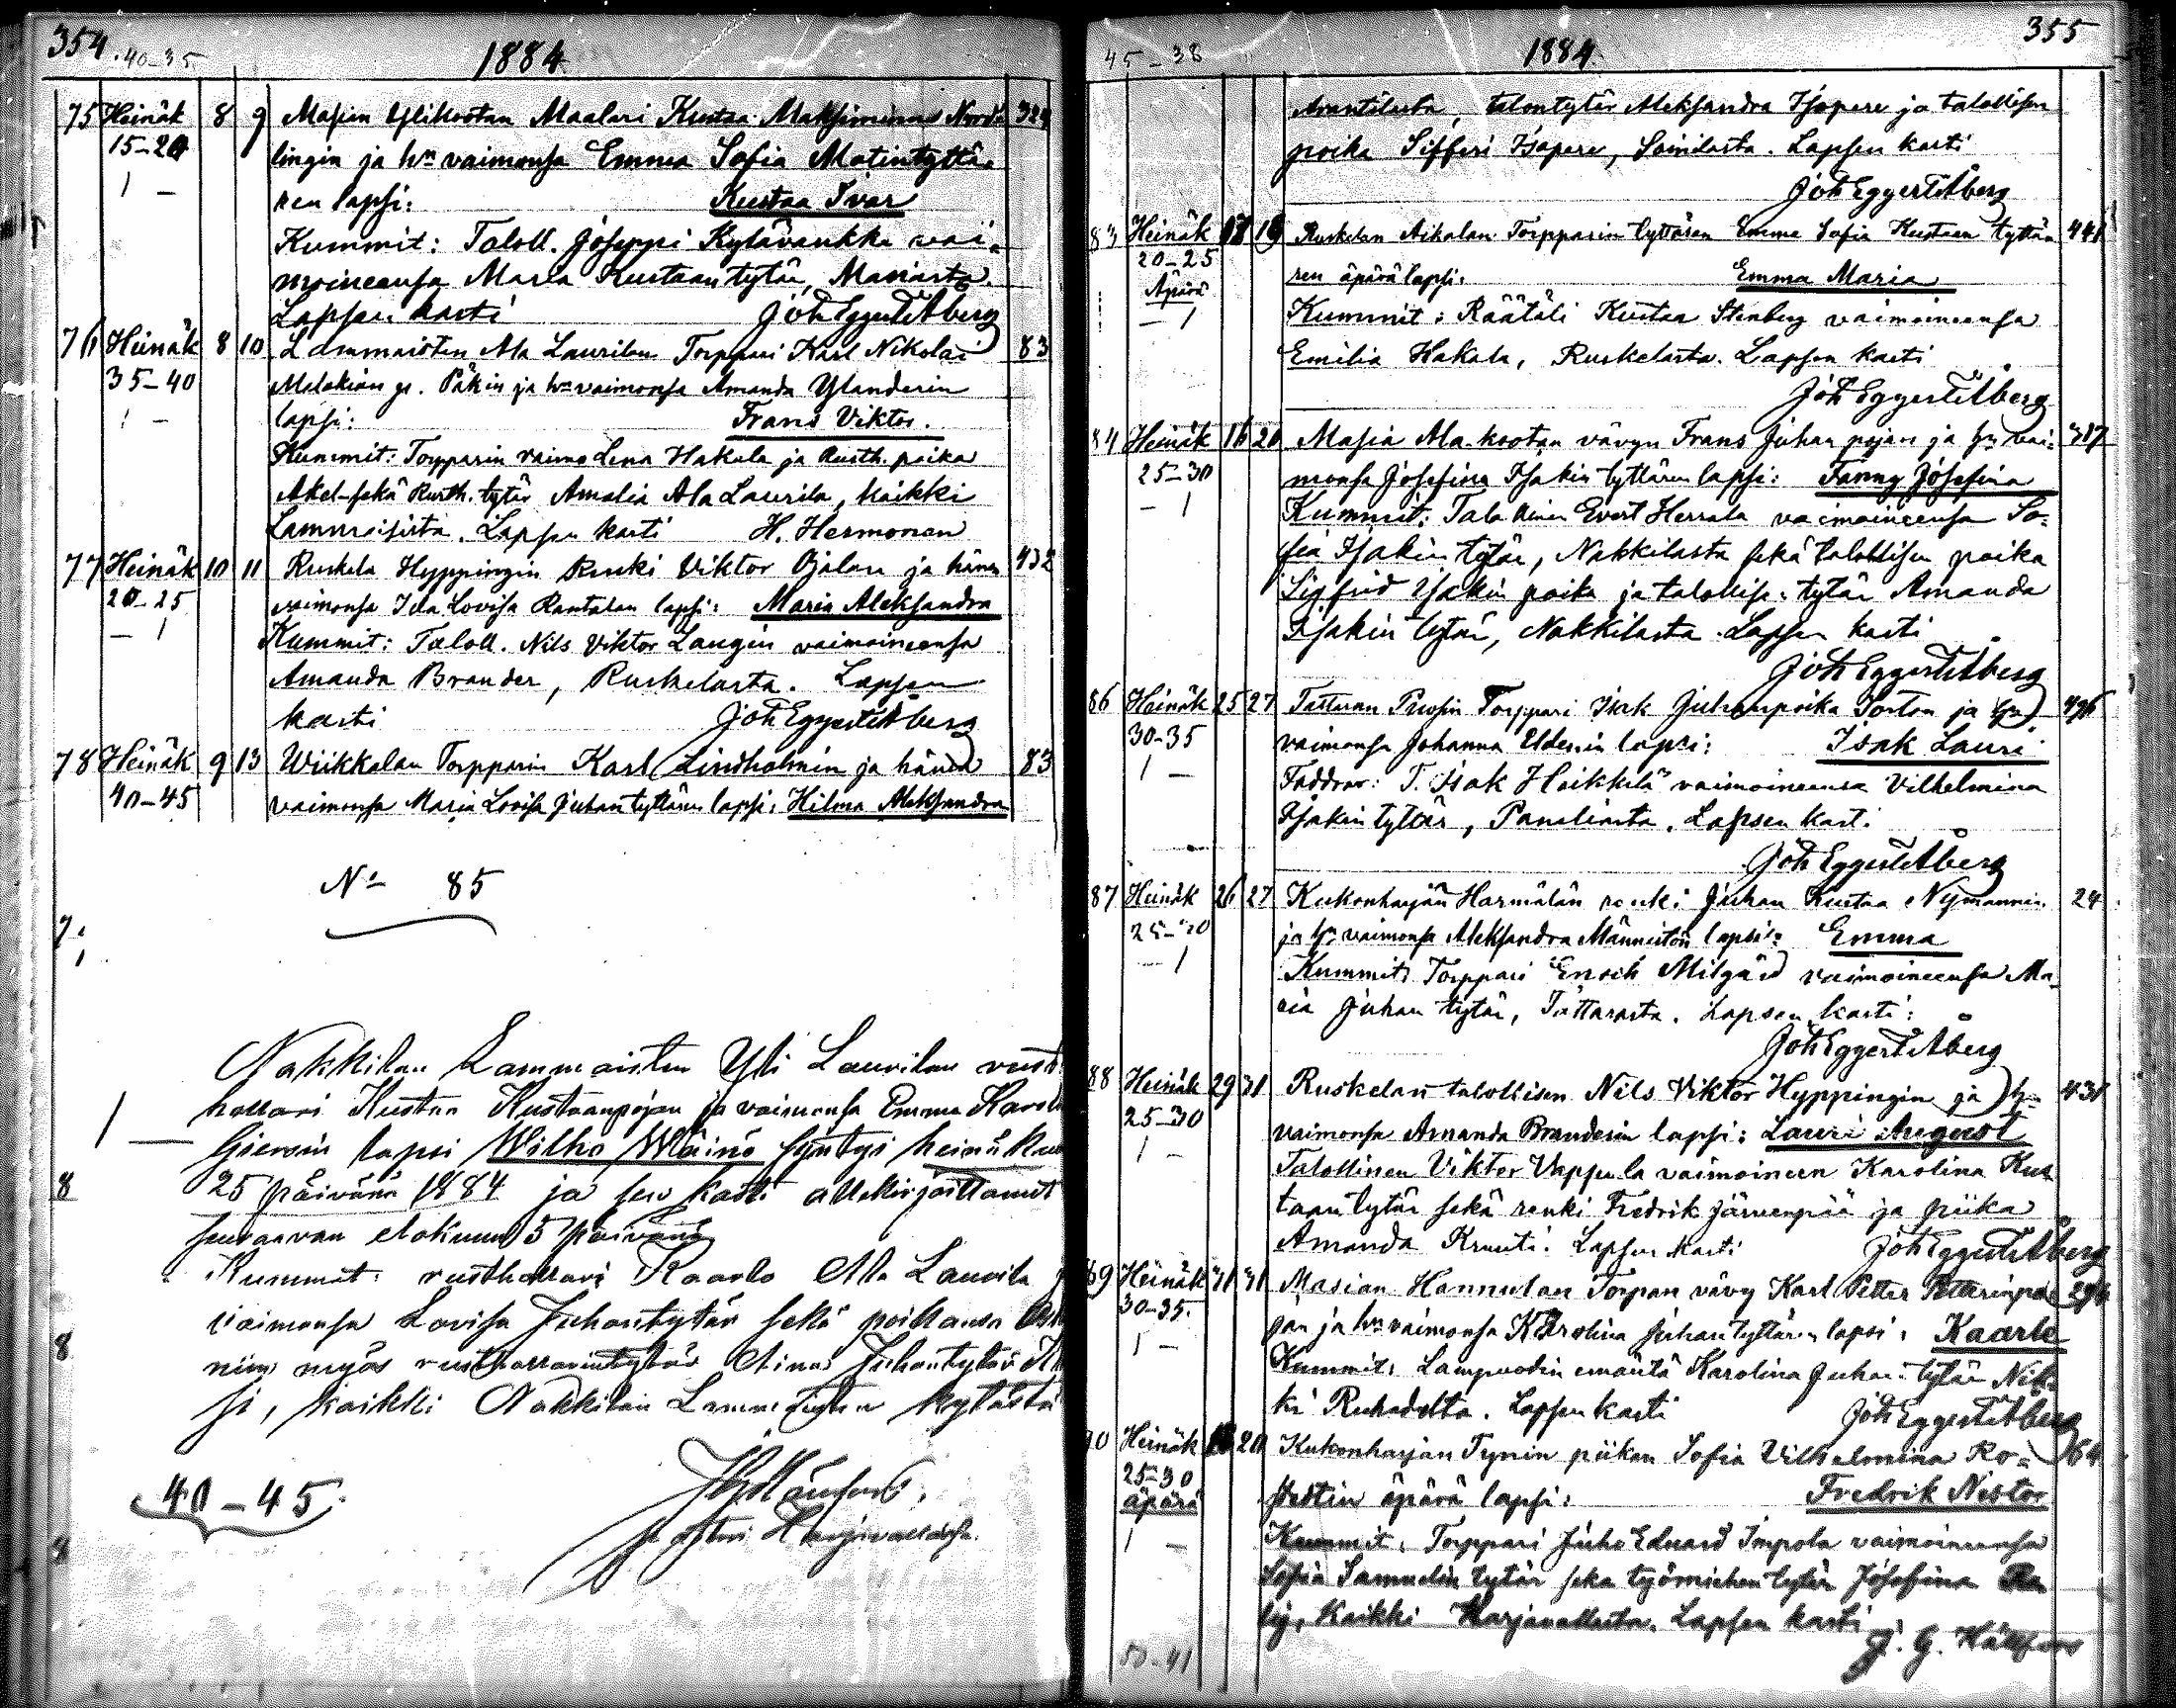 354. 40-35
1884
75 Heinäk 8 9 Masian Ylikootan Maalari Kustaa Maksiminus Nord- 324
15-20 lingin ja hn vaimonsa Emma Sofia Matintyttä-
1 - ren lapsi: Kustaa Ivar
Kummit: Taloll. Joseppi Kylävaukka vai-
moineansa Maria Kustaantytär, Masiasta.
Lapsen kasti Joh Eggert Åberg
76 Heinäk 8 10 Lammaisten Ala Laurilan Torppari Karl Nikolai 83
35-40 Malakian p. Päkin ja hn vaimonsa Amanda Ylanderin
1 - lapsi: Frans Viktor.
Kummit: Torpparin vaimo Lena Hakala ja Rusth. poika
Akel sekä Rusth. tytär Amalia Ala Laurila, kaikki
Lammaisista. Lapsen kasti H. Hermonen
77 Heinäk 10 11 Ruskela Hyppingin Renki Viktor Ojalan ja hänen 432
20-25 vaimonsa Ida Lovisa Rantalan lapsi: Maria Aleksandra
- 1 Kummit: Taloll. Nils Viktor Langin vaimoineensa
Amanda Brander, Ruskelasta. Lapsen
kasti Joh Eggert Åberg
78 Heinäk 9 13 Wiikkalan Torpparin Karl Lindholmin ja hänen 83
40-45 vaimonsa Maria Lovisa Juhantyttären lapsi: Hilma Aleksandra
No 85
Nakkilan Lammaisten Yli Laurilan rust
hollari Kustaa Kustaanpojan ja vaimonsa Emma Karol
1 - lapsi Wilho Wäinö syntyi heinäkuu
25 päivänä 1884 ja sen kasti allekirjoittanut
seuraavan elokuun 3 päivänä
Kummit: rusthollari Kaarlo Ala Laurila j
vaimonsa Lovisa Juhantytär sekä poikansa
niin myös rusthollarintytär Aina Juhantytär
si, kaikki Nakkilan Lammaisten kylästä
40-45
pastori Harjavallassa.
45-38
1884
355
Anantilasta, talontytär Aleksandra Isopere ja talollisen
poika Sifferi Isopere, Soinilasta. Lapsen kasti
Joh Eggert Åberg
83 Heinäk 18 19 Ruskelan Aikalan Torpparin tyttären Emma Sofia Kustaan tyttä- 441
20-25 ren äpärälapsi: Emma Maria
Äpärä
- 1 Kummit: Räätäli Kustaa Stenberg vaimoineensa
Emilia Hakala, Ruskelasta. Lapsen kasti
Joh Eggert Åberg
84 Heinäk 16 20 Masia Ala-kootan vävyn Frans Juhan pojan ja hn vai- 317
25-30 monsa Josefina Isakin tyttären lapsi: Fanny Josefina
- 1 Kummit: Talollinen Evert Herrala vaimoineensa So-
fia Isakin tytär, Nakkilasta sekä talollisen poika
Sigfrid Isakin poika ja talollise. tytär Amanda
Isakin tytär, Nakkilasta. Lapsen kasti
Joh Eggert Åberg
86 Heinäk 25 27 Tattaran Torppari Isak Juhanpoika Torton ja hn 496
30-35 vaimonsa Johanna Elderin lapsi: Isak Lauri
1 - Faddrar: T. Isak Heikkilä vaimoineensa Vilhelmina
Isakin tytär, Paneliasta. Lapsen kasti
Joh Eggert Åberg
87 Heinäk 26 27 Kukonharjan Harmälän renki Juhan Kustaa Nymannin 24
25-30 ja hn vaimonsa Aleksandra Männistön lapsi: Emma
- 1 Kummit: Torppari Enoch Milgård vaimoineensa Ma-
ria Juhan tytär, Tattarasta. Lapsen kasti:
Joh Eggert Åberg
88 Heinäk 29 31 Ruskelan talollisen Nils Viktor Hyppingin ja hn 431
25-30 vaimonsa Amanda Branderin lapsi: Lauri August
1 - Talollinen Viktor Uppula vaimoineen Karolina Kus-
taan tytär sekä renki Fredrik Järvenpää ja piika
Amanda Kruuti. Lapsen kasti Joh Eggert Åberg
89 Heinäk 31 31 Masian Hannulan Torpan vävy Karl Petter Petterinpo- 296
30-35. jan ja hn vaimonsa Karolina Juhan tyttären lapsi: Kaarle
1 - Kummit: Lampuodin emäntä Karolina Juhan tytär
Ruhadelta. Lapsen kasti Joh Eggert Åberg
90 Heinäk 18 20 Kukonharjan Tynin piikan Sofia Vilhelmina Ro- 64
25-30 äpärä lapsi: Fredrik Nestor
äpärä
1 - Kummit: Torppari Juho Eduard Impola vaimoineensa
Sofia Samuelin tytär seka työmiehen tytär Josefina
kaikki Harjavallasta. Lapsen kasti
J. G. Hällfors
50-41